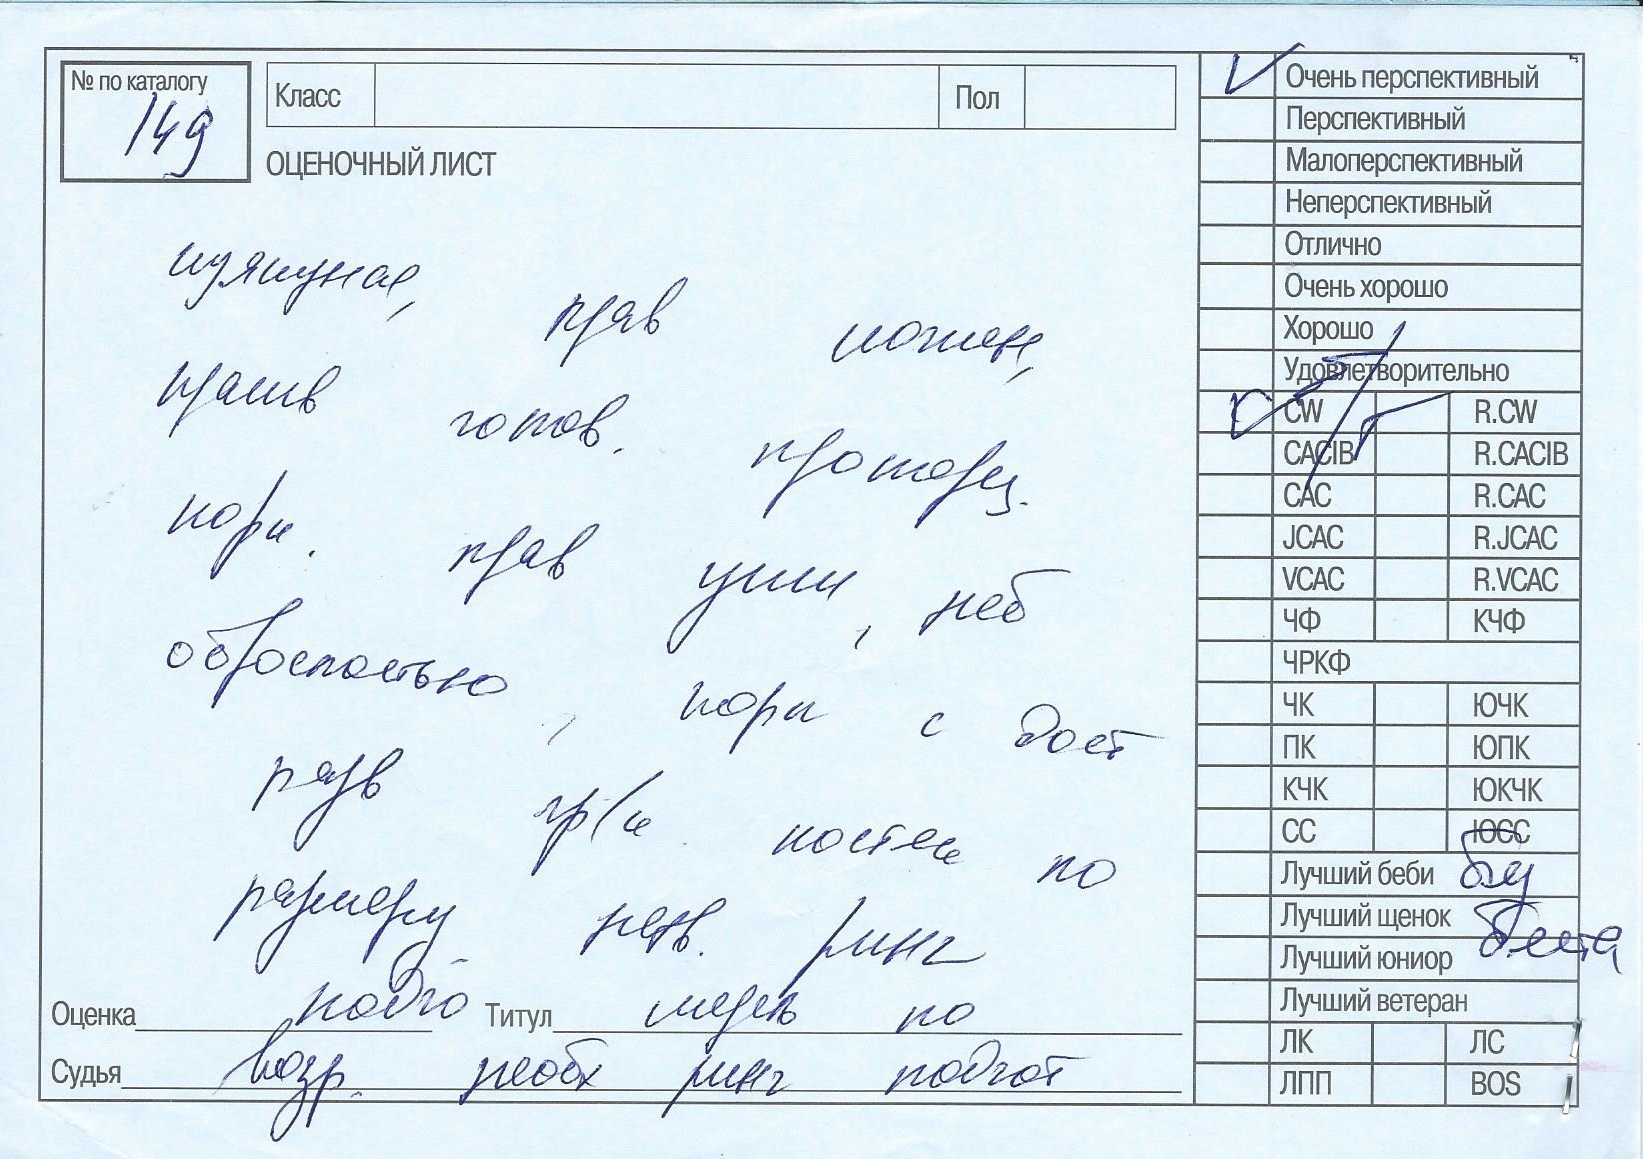 № по каталогу
149
Класс
Пол
ОЦЕНОЧНЫЙ ЛИСТ
изящная, прав
голов.
норм. прав уши, неб
оброслостью, норм с дост
разв гр/к костяк по
размеру нерв. ринг
Оценка подго Титул
по
Судья возр. необх ринг подгот
Очень перспективный
Перспективный
Малоперспективный
Неперспективный
Отлично
Очень хорошо
Хорошо
Удовлетворительно
CW R.CW
CACIB R.CACIB
CAC R.CAC
JCAC R.JCAC
VCAC R.VCAC
ЧФ КЧФ
ЧРКФ
ЧК ЮЧК
ПК ЮПК
КЧК ЮКЧК
СС ЮСС
Лучший беби без
Лучший щенок беста
Лучший юниор
Лучший ветеран
ЛК ЛС
ЛПП BOS